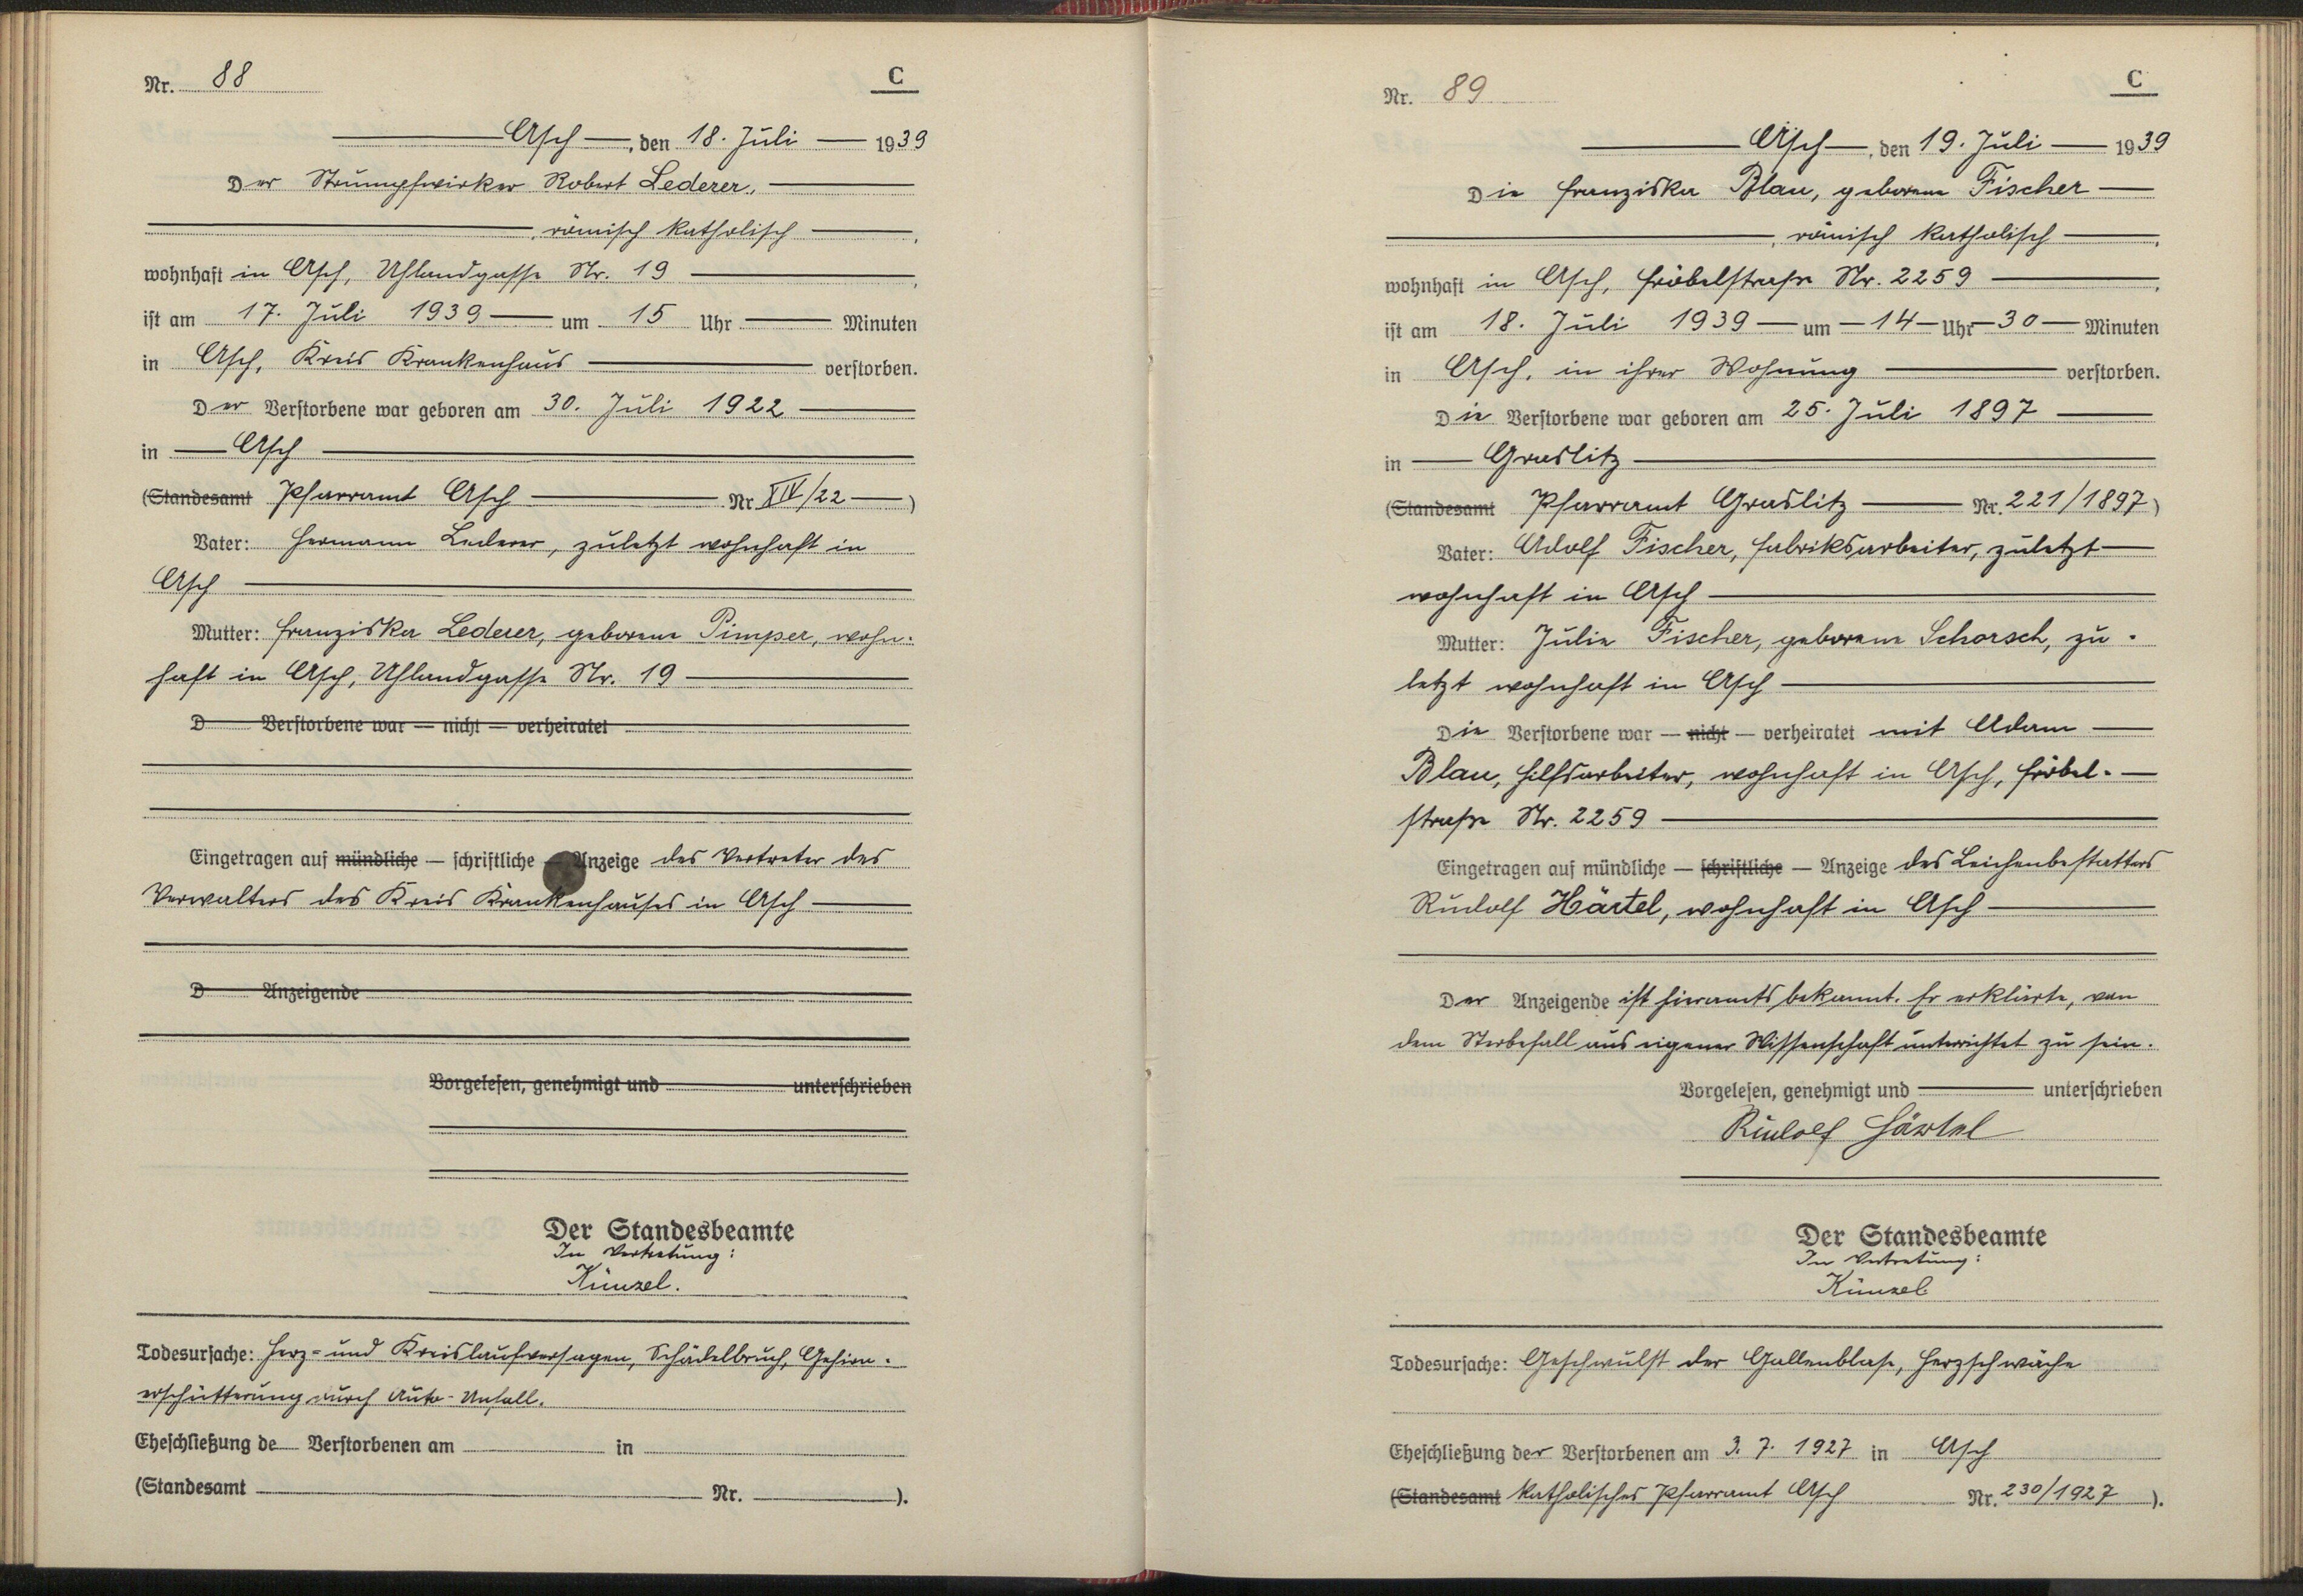 Nr. 88
C
Asch, den 18. Juli 1939
Der Strumpfwirker Robert Lederer,
, römisch katholisch,
wohnhaft in Asch, Uhlandgasse Nr. 19,
ist am 17. Juli 1939 um 15 Uhr Minuten
in Asch, Kreis Krankenhaus verstorben.
Der Verstorbene war geboren am 30. Juli 1922
in Asch
(Standesamt Pfarramt Asch Nr XIV/22)
Vater: Hermann Lederer, zuletzt wohnhaft in
Asch
Mutter: Franziska Lederer, geborene Pimper, wohn-
haft in Asch, Uhlandgasse Nr. 19
D Verstorbene war — nicht — verheiratet
Eingetragen auf mündliche — schriftliche — Anzeige des Vertreter des
Verwalters des Kreis Krankenhauses in Asch
D Anzeigende
Vorgelesen, genehmigt und unterschrieben
Der Standesbeamte
In Vertretung:
Künzel.
Todesursache: Herz- und Kreislaufversagen, Schädelbruch, Gehirn-
erschütterung durch Auto-Unfall.
Eheschließung de Verstorbenen am in
(Standesamt Nr. ).
Nr. 89
C
Asch, den 19. Juli 1939
Die Franziska Blau, geborene Fischer
, römisch katholisch,
wohnhaft in Asch, Fröbelstraße Nr. 2259,
ist am 18. Juli 1939 um 14 Uhr 30 Minuten
in Asch, in ihrer Wohnung verstorben.
Die Verstorbene war geboren am 25. Juli 1897
in Graslitz
(Standesamt Pfarramt Graslitz Nr. 221/1897)
Vater: Adolf Fischer, Fabriksarbeiter, zuletzt
wohnhaft in Asch
Mutter: Julie Fischer, geborene Schorsch, zu-
letzt wohnhaft in Asch
Die Verstorbene war — nicht — verheiratet mit Adam
Blau, Hilfsarbeiter, wohnhaft in Asch, Fröbel-
straße Nr. 2259
Eingetragen auf mündliche — schriftliche — Anzeige des Leichenbestatters
Rudolf Härtel, wohnhaft in Asch
Der Anzeigende ist hieramts bekannt. Er erklärte, von
dem Sterbefall aus eigener Wissenschaft unterrichtet zu sein.
Vorgelesen, genehmigt und unterschrieben
Rudolf Härtel
Der Standesbeamte
In Vertretung:
Künzel
Todesursache: Geschwulst der Gallenblase, Herzschwäche
Eheschließung der Verstorbenen am 3. 7. 1927 in Asch
(Standesamt katholisches Pfarramt Asch Nr. 230/1927 ).